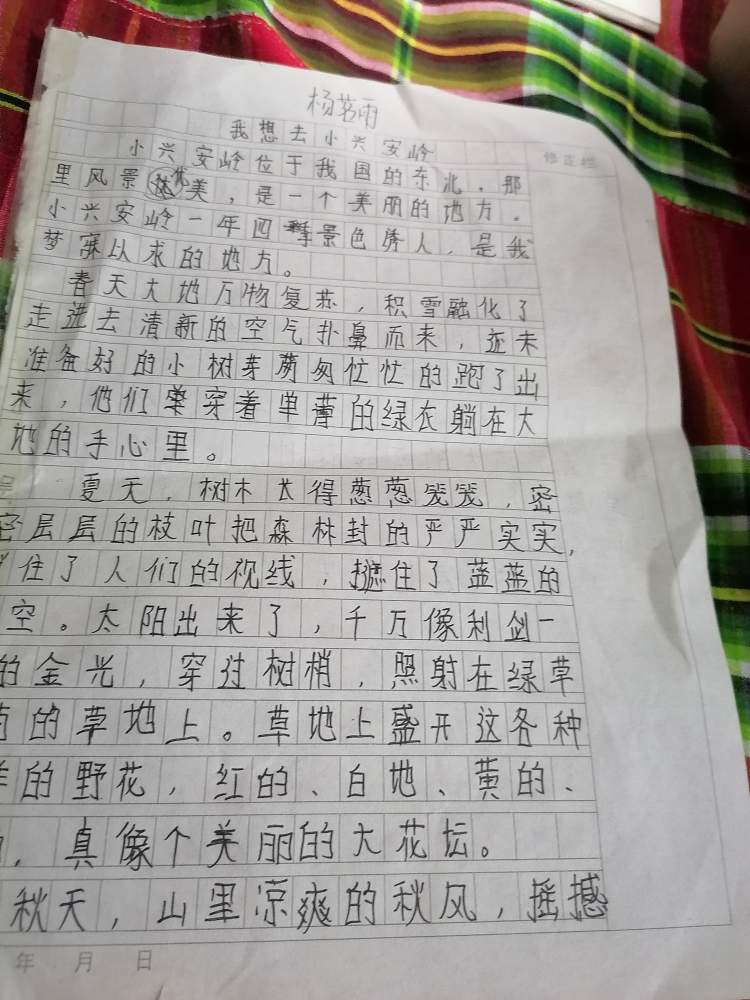 杨茗雨
我想去小兴安岭
修正栏
小兴安岭位于我国的东北,那
里风景优美,是一个美丽的地方。
小兴安岭一年四季景色诱人,是我
梦寐以求的地方。
春天大地万物复苏,积雪融化了
走进去清新的空气扑鼻而来,还未
准备好的小树芽匆匆忙忙的跑了出
来,他们穿着单薄的绿衣躺在大
地的手心里。
夏天,树木长得葱葱笼笼,密
密层层的枝叶把森林封的严严实实,
住了人们的视线,遮住了蓝蓝的
空。太阳出来了,千万像利剑一
的金光,穿过树梢,照射在绿草
的草地上。草地上盛开这各种
样的野花,红的、白地、黄的、
,真像个美丽的大花坛。
秋天,山里凉爽的秋风,摇撼
年 月 日